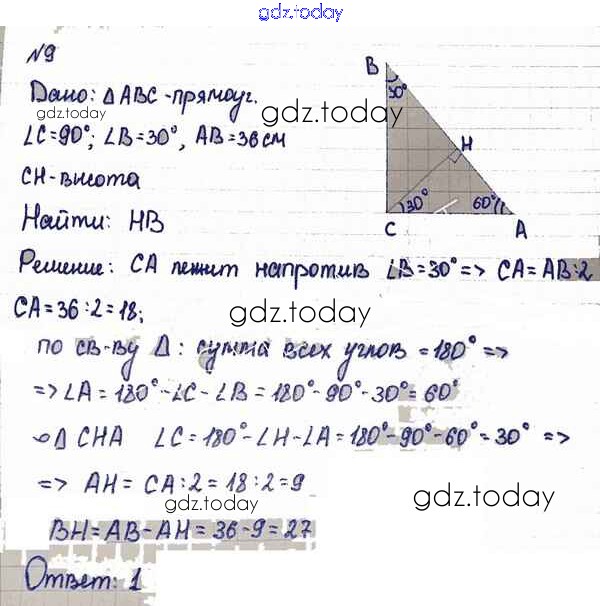 gdz.today
№9
Дано: ΔABC - прямоуг.
gdz.today
∠C=90°; ∠B=30°, AB=36 см
CH-высота
Найти: HB
B
30°
gdz.today
H
30°
60°
C
A
Решение: CA лежит напротив ∠B=30° => CA=AB:2
CA=36:2=18;
gdz.today
по св-ву Δ: сумма всех углов =180° =>
=> ∠A = 180° - ∠C - ∠B = 180° - 90° - 30° = 60°
Δ CHA ∠C = 180° - ∠H - ∠A = 180° - 90° - 60° = 30° =>
=> AH = CA:2 = 18:2 = 9
gdz.today
gdz.today
BH = AB - AH = 36 - 9 = 27
Ответ: 1